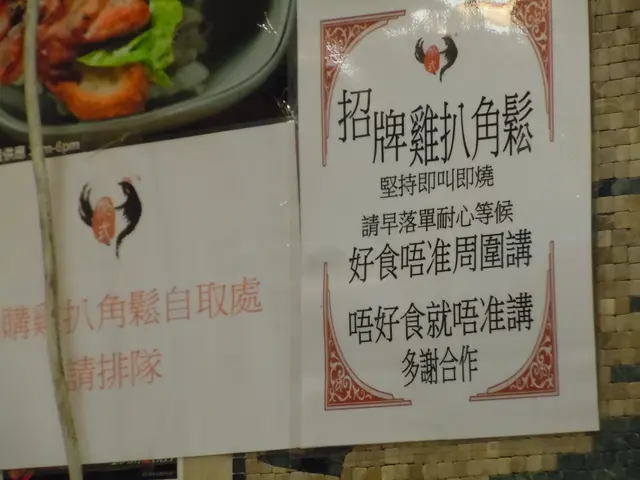 招牌雞扒角鬆
堅持即叫即燒
請早落單耐心等候
好食唔准周圍講
唔好食就唔准講
多謝合作
購雞扒角鬆自取處
請排隊